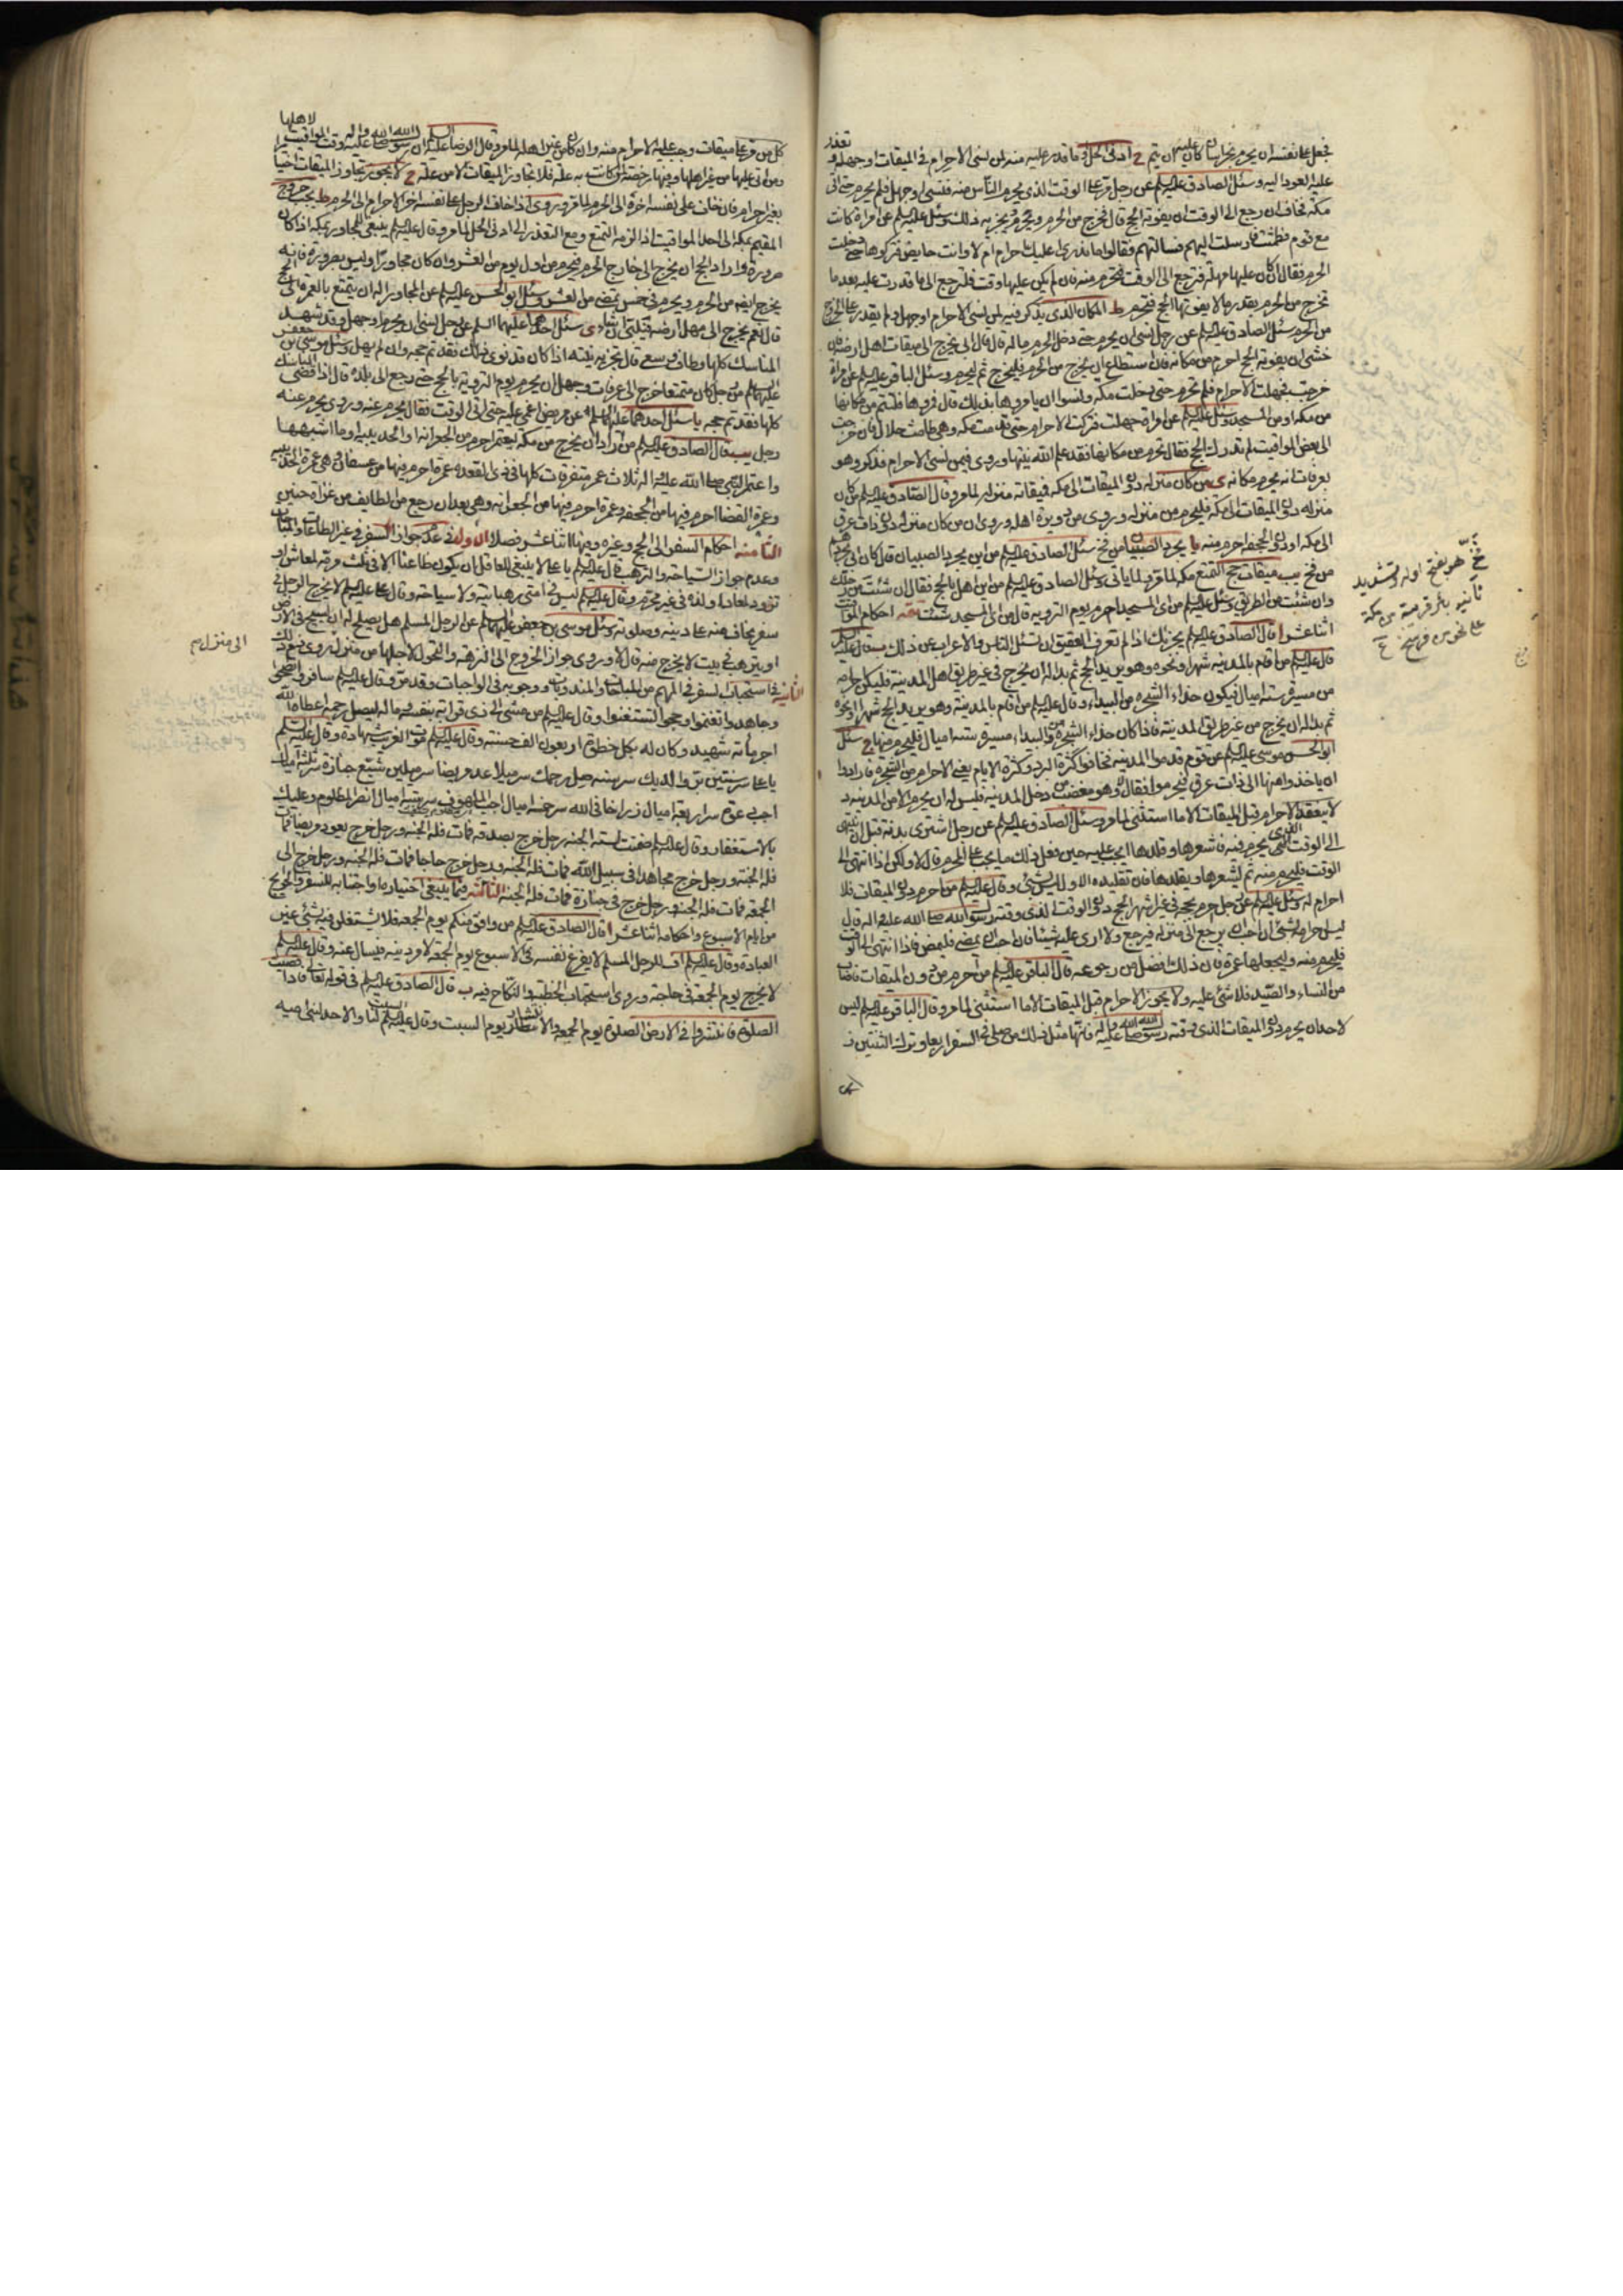 فجعل على نفسه ان يحرم بخراسان كان عليه ان يتم ح ادنى الحل او ما قدر عليه منه لمن نسى الاحرام فى الميقات او جهله و تعذر
عليه العود اليه وسئل الصادق عليه السلم عن رجل مر على الوقت الذى يحرم الناس منه فنسى او جهل فلم يحرم حتى اتى
مكة فخاف ان رجع الى الوقت ان يفوته الحج قال يخرج من الحرم ويحرم ويجزيه ذلك وسئل عليه السلم عن امراة كانت
مع قوم فطمثت فارسلت اليهم فسالتهم فقالوا ما ندرى اعليك احرام ام لا وانت حايض فتركوها حتى دخلت
الحرم فقال ان كان عليها مهلة فترجع الى الوقت فتحرم منه فان لم يكن عليها وقت فلترجع الى ما قدرت عليه بعد ما
تخرج من الحرم بقدر ما لا يفوتها الحج فتحرم ط المكان الذى يذكر فيه لمن نسى الاحرام او جهل ولم يقدر على الخروج
من الحرم سئل الصادق عليه السلم عن رجل نسى ان يحرم حتى دخل الحرم ما له قال قال ابى يخرج الى ميقات اهل ارضه فان
خشى ان يفوته الحج احرم من مكانه فان استطاع ان يخرج من الحرم فليخرج ثم ليحرم وسئل الباقر عليه السلم عن امراة
من مكة او من المسجد وسئل عليه السلم عن امراة جهلت فتركت الاحرام حتى قدمت مكة وهى طامث حلال
الى بعض المواقيت لم تدرك الحج فقال تحرم من مكانها فقد علم الله نيتها وروى فيمن نسى الاحرام فذكر وهو
بعرفات انه يحرم مكانه ى من كان منزله دون الميقات الى مكة فميقاته منزله لما مر وقال الصادق عليه السلم من كان
منزله دون الميقات الى مكة فليحرم من منزله وروى من دويرة اهله وروى ان من كان منزله دون ذات عرق
الى مكة او دون الجحفة احرم منه يا يجرد الصبيان من فخ سئل الصادق عليه السلم من اين يجرد الصبيان قال كان ابى يجردهم
من فخ يب ميقات حج التمتع مكة لما مر ولما ياتى وسئل الصادق عليه السلم من اين اهل بالحج فقال ان شئت من رحلك
وان شئت من الطريق وسئل عليه السلم من اى المسجد احرم يوم التروية قال من اى المسجد شئت تتمه احكام المواقيت
اثنا عشر ا قال الصادق عليه السلم يجزيك اذا لم تعرف العقيق ان تسئل الناس والاعراب عن ذلك ب قال عليه السلم
قال عليه السلم من اقام بالمدينة شهرا او نحوه وهو يريد الحج ثم بدا له ان يخرج فى غير طريق اهل المدينة فليكن احرامه
من مسيرة ستة اميال فيكون حذاء الشجرة من البيداء وقال عليه السلم من اقام بالمدينة وهو يريد الحج شهرا او نحوه
ثم بدا له ان يخرج من غير طريق المدينة فاذا كان حذاء الشجرة والبيداء مسيرة ستة اميال فليحرم منها ج سئل
ابو الحسن موسى عليه السلم عن قوم قدموا المدينة فخافوا كثرة البرد وكثرة الايام يعنى الاحرام من الشجرة فارادوا
ان ياخذوا منها الى ذات عرق فيحرموا فقال لا وهو مغضب من دخل المدينة فليس له ان يحرم الا من المدينة د
لا ينعقد الاحرام قبل الميقات الا ما استثنى لما مر وسئل الصادق عليه السلم عن رجل اشترى بدنة قبل ان ينتهى
الى الوقت الذى يحرم فيه فاشعرها وقلدها ايجب عليه حين فعل ذلك ما يجب على المحرم قال لا ولكن اذا انتهى الى
الوقت فليحرم منه ثم ليشعرها ويقلدها فان تقليده الاول ليس بشئ وقال عليه السلم من احرم دون الميقات فلا
احرام له وسئل عليه السلم عن رجل احرم بحجة فى غير اشهر الحج دون الوقت الذى وقته رسول الله صلى الله عليه واله قال
ليس احرامه بشئ ان احب ان يرجع الى منزله فيرجع ولا ارى عليه شيئا فان احب ان يمضى فليمض فاذا انتهى الى الوقت
فليحرم منه وليجعلها عمرة فان ذلك افضل من رجوعه قال الباقر عليه السلم من احرم من دون الميقات فاصاب
من النساء والصيد فلا شئ عليه ه لا يجوز الاحرام قبل الميقات الا ما استثنى لما مر وقال الباقر عليه السلم ليس
لاحد ان يحرم دون الميقات الذى وقته رسول الله صلى الله عليه واله فانما مثل ذلك من صلى فى السفر اربعا وترك الثنتين
فخ هو بفتح اوله وتشديد
ثانيه بئر قريبة من مكة
على نحو من فرسخ
كل من مر على ميقات وجب عليه الاحرام منه وان كان من غير اهله لما مر وقال الرضا عليه السلم ان رسول الله صلى الله عليه واله وقت المواقيت لاهلها
ومن اتى عليها من غير اهلها وفيها رخصة لمن كانت به علة فلا تجاوز الميقات الا من علة ح لا يجوز تجاوز الميقات اختيارا
بغير احرام فان خاف على نفسه اخره الى الحرم لما مر وروى اذا خاف الرجل على نفسه اخر الاحرام الى الحرم ط يجب خروج
المقيم بمكة الى احد المواقيت اذا لزمه التمتع ومع التعذر الى ادنى الحل لما مر وقال عليه السلم ينبغى للمجاور بمكة اذا كان
صرورة واراد الحج ان يخرج الى خارج الحرم فيحرم من اول يوم من العشر وان كان مجاورا وليس بصرورة فانه
يخرج ايضا من الحرم ويحرم فى خمس تمضى من العشر وسئل ابو الحسن عليه السلم عن المجاور اله ان يتمتع بالعمرة الى الحج
قال نعم يخرج الى مهل ارضه فيلبى ان شاء ى سئل احدهما عليهما السلم عن رجل نسى ان يحرم او جهل وقد شهد
المناسك كلها وطاف وسعى قال تجزيه نيته اذا كان قد نوى ذلك فقد تم حجه وان لم يهل وسئل موسى بن جعفر
عليهما السلم عن رجل كان متمتعا خرج الى عرفات وجهل ان يحرم يوم التروية بالحج حتى رجع الى بلده قال اذا قضى المناسك
كلها فقد تم حجه يا سئل احدهما عليهما السلم عن مريض اغمى عليه حتى اتى الوقت فقال يحرم عنه وروى يحرم عنه
رجل يب قال الصادق عليه السلم من اراد ان يخرج من مكة ليعتمر احرم من الجعرانة او الحديبية او ما اشبهها
واعتمر النبى صلى الله عليه واله ثلاث عمر متفرقات كلها فى ذى القعدة عمرة احرم فيها من عسفان وهى عمرة الحديبية
وعمرة القضا احرم فيها من الجحفة وعمرة احرم فيها من الجعرانة وهى بعد ان رجع من الطايف من غزاة حنين
الثامنه احكام السفر الى الحج وغيره وفيها اثنا عشر فصلا الاول فى عدم جواز السفر فى غير الطاعات والمباحات
وعدم جواز السياحة والترهب قال عليه السلم يا على لا ينبغى للعاقل ان يكون ظاعنا الا فى ثلث مرمة لمعاش او
تزود لمعاد او لذة فى غير محرم وقال عليه السلم ليس فى امتى رهبانية ولا سياحة وقال على عليه السلم لا يخرج الرجل فى
سفر يخاف منه على دينه وصلوته وسئل موسى بن جعفر عليهما السلم عن الرجل المسلم هل يصلح له ان يسيح فى الارض
او يترهب فى بيت لا يخرج منه قال لا وروى جواز الخروج الى النزهة والتحول لاجلها من منزل
الى منزل
الثانيه فى استحباب السفر فى المهم من المباحات والمندوبات ووجوبه فى الواجبات وقد مر وقال عليه السلم سافروا تصحوا
وجاهدوا تغنموا وحجوا تستغنوا وقال عليه السلم من مشى الى ذى قرابة بنفسه وماله ليصل رحمه اعطاه الله
اجر مائة شهيد وكان له بكل خطوة اربعون الف حسنة وقال عليه السلم موت الغريب شهادة وقال عليه السلم
يا على سر سنتين بر والديك سر سنة صل رحمك سر ميلا عد مريضا سر ميلين شيع جنازة سر ثلثة اميال
اجب دعوة سر اربعة اميال زر اخا فى الله سر خمسة اميال اجب الملهوف سر ستة اميال انصر المظلوم وعليك
بالاستغفار وقال عليه السلم ضمنت لستة الجنة رجل خرج بصدقة فمات فله الجنة ورجل خرج يعود مريضا فمات
فله الجنة ورجل خرج مجاهدا فى سبيل الله فمات فله الجنة ورجل خرج حاجا فمات فله الجنة ورجل خرج الى
الجمعة فمات فله الجنة ورجل خرج فى جنازة فمات فله الجنة الثالثه فيما ينبغى اختياره او اجتنابه للسفر والحوايج
من ايام الاسبوع واحكامه اثنا عشر ا قال الصادق عليه السلم من وافق منكم يوم الجمعة فلا يشتغلن بشئ غير
العبادة وقال عليه السلم اف للرجل المسلم لا يفرغ نفسه فى الاسبوع يوم الجمعة لامر دينه فيسال عنه وقال عليه السلم
لا يخرج يوم الجمعة فى حاجة وروى استحباب الخطبة والنكاح فيه ب قال الصادق عليه السلم فى قوله تعالى فاذا قضيت
الصلوة فانتشروا فى الارض الصلوة يوم الجمعة والانتشار يوم السبت وقال عليه السلم السبت لنا والاحد لبنى امية